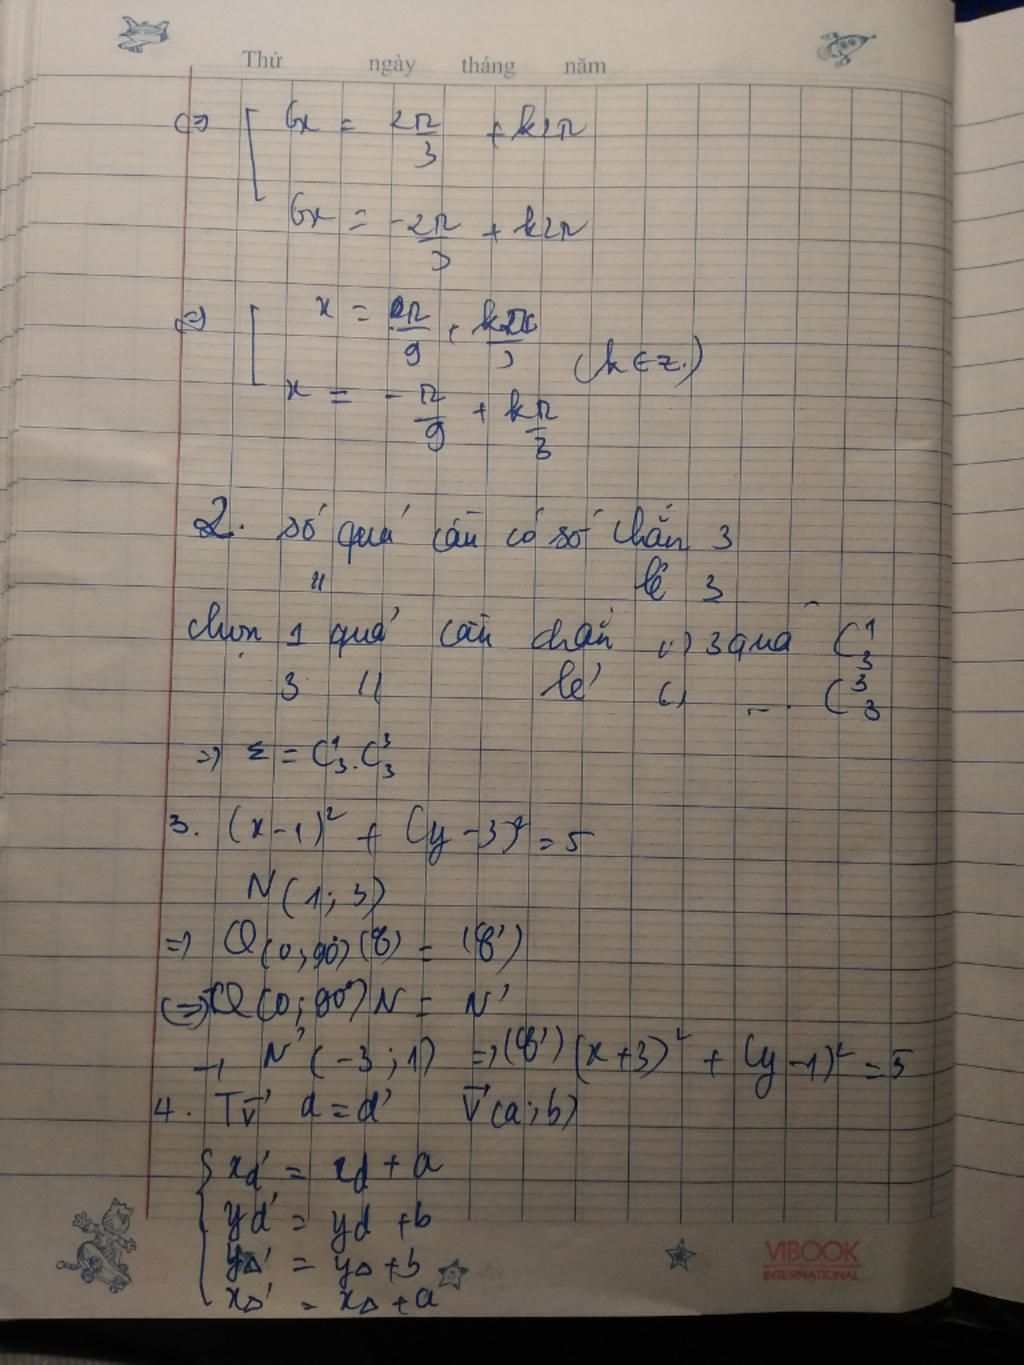 Thứ ngày tháng năm
<=> [ 6x = 2π/3 + k2π
6x = -2π/3 + k2π
<=> [ x = π/9 + kπ/3
(k ∈ Z.)
x = -π/9 + kπ/3
2. Số quả cầu có số chẵn 3
" lẻ 3
chọn 1 quả cầu chẵn từ 3 quả C₃¹
3 " lẻ từ ... C₃³
=> Σ = C₃¹.C₃³
3. (x-1)² + (y-3)² = 5
N(1;3)
=> Q(0;90°)(C) = (C')
<=> Q(0;90°)N = N'
→ N'(-3;1) => (C') (x+3)² + (y-1)² = 5
4. Tv⃗ d = d' v⃗(a;b)
{ xd' = xd + a
yd' = yd + b
yΔ' = yΔ + b
xΔ' = xΔ + a
VIBOOK
INTERNATIONAL